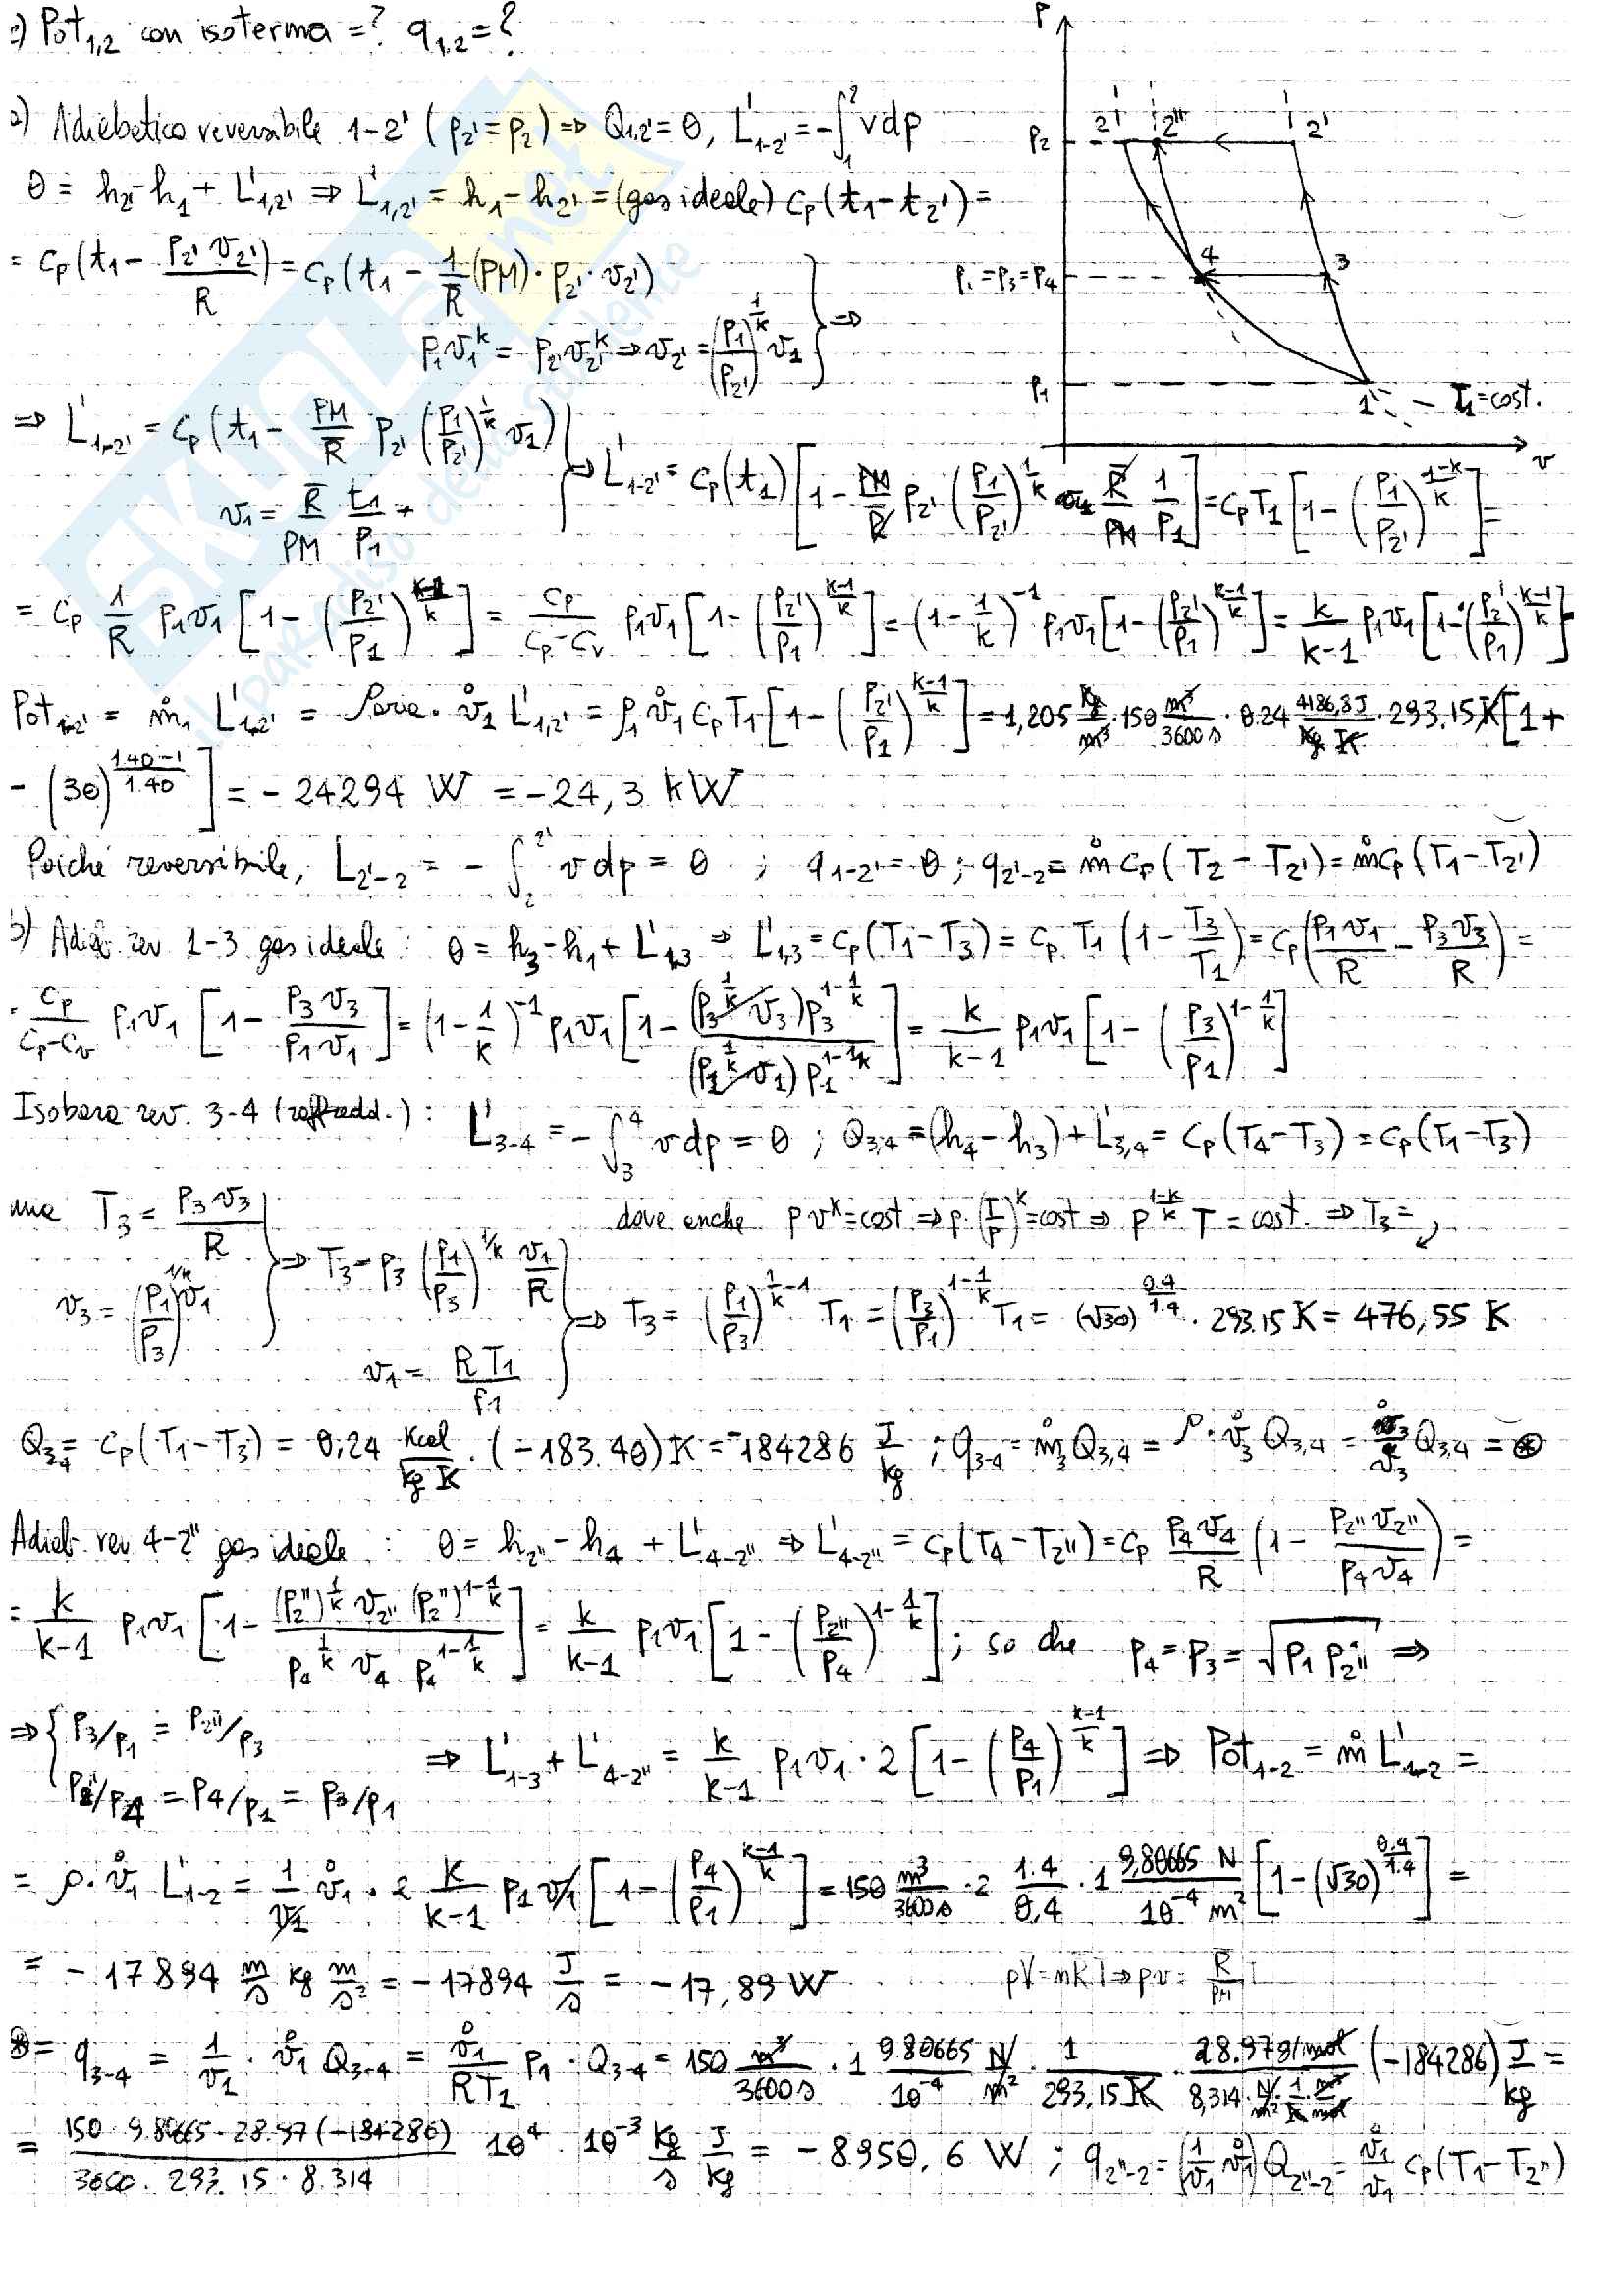 c) Pot₁,₂ con isoterma = ? q₁,₂ = ?
a) Adiabatica reversibile 1-2' (p₂' = p₂) ⇒ Q₁,₂' = 0, L'₁₋₂' = -∫₁² v dp
0 = h₂' - h₁ + L'₁,₂' ⇒ L'₁,₂' = h₁ - h₂' = (gas ideale) cp (t₁ - t₂') =
= cp (t₁ - p₂' v₂'/R) = cp (t₁ - 1/R̄ (PM) · p₂' · v₂')
p₁v₁^k = p₂'v₂'^k ⇒ v₂' = (p₁/p₂')^(1/k) v₁ } ⇒
⇒ L'₁₋₂' = cp (t₁ - PM/R̄ p₂' (p₁/p₂')^(1/k) v₁)
v₁ = R̄/PM t₁/p₁
⇒ L'₁₋₂' = cp (t₁) [1 - PM/R̄ p₂' (p₁/p₂')^(1/k) R̄/PM 1/p₁] = cp T₁ [1 - (p₁/p₂')^((1-k)/k)] =
= cp 1/R p₁v₁ [1 - (p₂'/p₁)^((k-1)/k)] = cp/(cp-cv) p₁v₁ [1 - (p₂'/p₁)^((k-1)/k)] = (1 - 1/k)^-1 p₁v₁ [1 - (p₂'/p₁)^((k-1)/k)] = k/(k-1) p₁v₁ [1 - (p₂'/p₁)^((k-1)/k)]
Pot₁₋₂' = ṁ₁ L'₁,₂' = ρaria · v̊₁ L'₁,₂' = ρ₁ v̊₁ cp T₁ [1 - (p₂'/p₁)^((k-1)/k)] = 1,205 kg/m³ · 150 m³/3600 s · 0.24 4186,8 J/kg K · 293.15 K [1 +
- (30)^((1.40-1)/1.40)] = -24294 W = -24,3 kW
Poiché reversibile, L₂'₋₂ = -∫₂^2' v dp = 0 ; q₁₋₂' = 0 ; q₂'₋₂ = ṁ cp (T₂ - T₂') = ṁ cp (T₁ - T₂')
b) Adiab rev 1-3 gas ideale : 0 = h₃ - h₁ + L'₁,₃ ⇒ L'₁,₃ = cp (T₁ - T₃) = cp T₁ (1 - T₃/T₁) = cp (p₁v₁/R - p₃v₃/R) =
= cp/(cp-cv) p₁v₁ [1 - p₃v₃/p₁v₁] = (1 - 1/k)^-1 p₁v₁ [1 - (p₃^(1/k) v₃) p₃^(1-1/k) / (p₁^(1/k) v₁) p₁^(1-1/k)] = k/(k-1) p₁v₁ [1 - (p₃/p₁)^(1-1/k)]
Isobara rev. 3-4 (raffredd.) : L'₃₋₄ = -∫₃⁴ v dp = 0 ; Q₃,₄ = (h₄ - h₃) + L'₃,₄ = cp (T₄ - T₃) = cp (T₁ - T₃)
ma T₃ = p₃v₃/R
dove anche p v^k = cost ⇒ p · (T/p)^k = cost ⇒ p^((1-k)/k) T = cost. ⇒ T₃ =
v₃ = (p₁/p₃)^(1/k) v₁ } ⇒ T₃ = p₃ (p₁/p₃)^(1/k) v₁/R
v₁ = R T₁/p₁ } ⇒ T₃ = (p₁/p₃)^(1/k - 1) T₁ = (p₃/p₁)^(1-1/k) T₁ = (√30)^(0.4/1.4) · 293.15 K = 476,55 K
Q₃₋₄ = cp (T₁ - T₃) = 0,24 kcal/kg K · (-183.40) K = -184286 J/kg ; q₃₋₄ = ṁ₃ Q₃,₄ = ρ · v̊₃ Q₃,₄ = v̊₃/v₃ Q₃,₄ = ⊛
Adiab rev 4-2" gas ideale : 0 = h₂" - h₄ + L'₄₋₂" ⇒ L'₄₋₂" = cp (T₄ - T₂") = cp p₄v₄/R (1 - p₂"v₂"/p₄v₄) =
= k/(k-1) p₁v₁ [1 - (p₂")^(1/k) v₂" (p₂")^(1-1/k) / p₄^(1/k) v₄ p₄^(1-1/k)] = k/(k-1) p₁v₁ [1 - (p₂"/p₄)^(1-1/k)] ; so che p₄ = p₃ = √(p₁ p₂") ⇒
⇒ { p₃/p₁ = p₂"/p₃
p₂"/p₄ = p₄/p₁ = p₃/p₁
⇒ L'₁₋₃ + L'₄₋₂" = k/(k-1) p₁v₁ · 2 [1 - (p₄/p₁)^((k-1)/k)] ⇒ Pot₁₋₂ = ṁ L'₁₋₂ =
= ρ · v̊₁ L'₁₋₂ = 1/v₁ v̊₁ · 2 k/(k-1) p₁ v₁ [1 - (p₄/p₁)^((k-1)/k)] = 150 m³/3600 s · 2 1.4/0,4 · 1 9,80665 N/10⁻⁴ m² [1 - (√30)^(0.4/1.4)] =
= -17894 m/s kg m/s² = -17894 J/s = -17,89 W
pV = mRT ⇒ pv = R̄/PM T
⊛ = q₃₋₄ = 1/v₁ · v̊₁ Q₃₋₄ = v̊₁/RT₁ p₁ · Q₃₋₄ = 150 m³/3600 s · 1 9.80665/10⁻⁴ N/m² · 1/293,15 K · 28.97 g/mol / 8,314 N/m² 1/K m³/mol (-184286) J/kg =
= 150 · 9.80665 · 28.97 (-184286) / 3600 · 293.15 · 8.314 10⁴ · 10⁻³ kg/s J/kg = -8950,6 W ; q₂"₋₂ = (1/v₁ v̊₁) Q₂"₋₂ = v̊₁/v₁ cp (T₁ - T₂")
p
p₂
2
2"
2'
p₁=p₃=p₄
4
3
p₁
1
T₁=cost.
v
SKUOLA.net
il paradiso dello studente